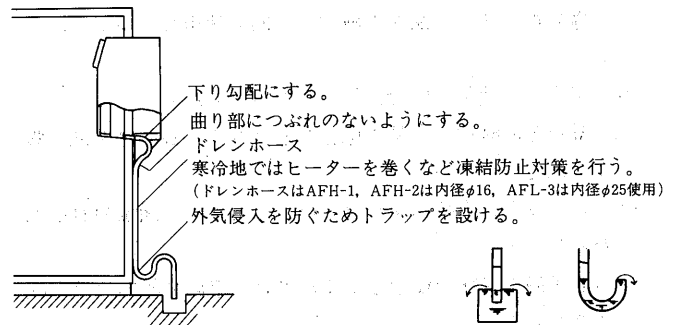 下り勾配にする。
曲り部につぶれのないようにする。
ドレンホース
寒冷地ではヒーターを巻くなど凍結防止対策を行う。
(ドレンホースはAFH-1, AFH-2は内径φ16, AFL-3は内径φ25使用)
外気侵入を防ぐためトラップを設ける。